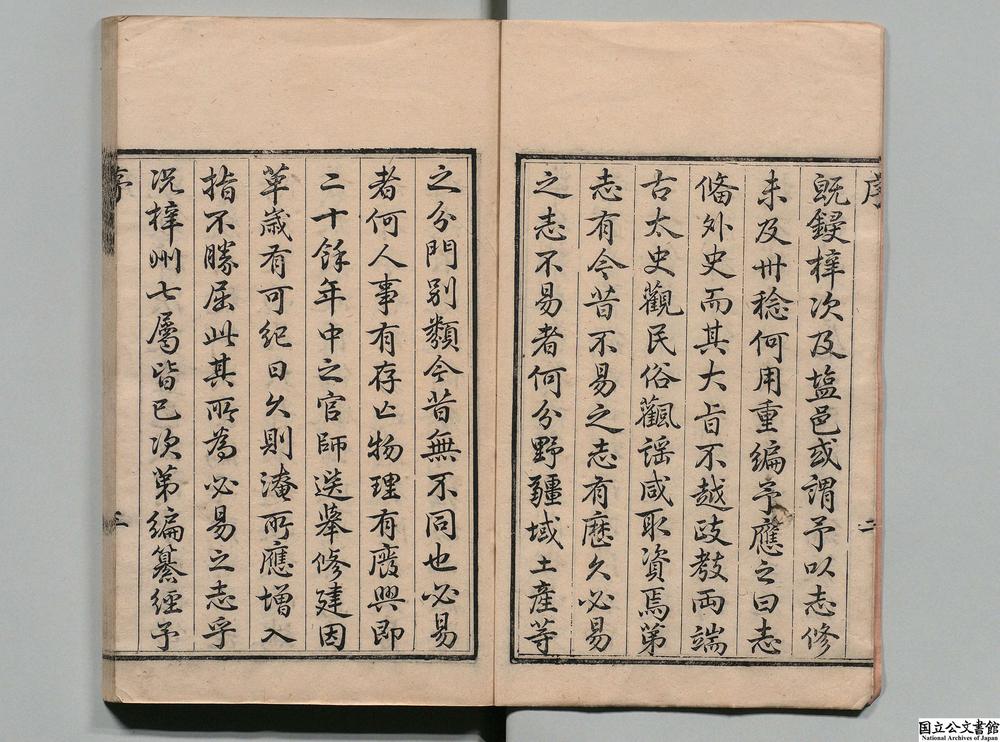 序
二
既鋟梓次及塩邑或謂予以志修
未及卅稔何用重編予應之曰志
俻外史而其大旨不越政教両端
古太史觀民俗觀謡咸取資焉第
志有今昔不易之志有歷久必易
之志不易者何分野疆域土產等
之分門别類今昔無不同也必易
者何人事有存亡物理有廢興即
二十餘年中之官師迭舉修建因
革歳有可紀日久則淹所應增入
指不勝屈此其所為必易之志乎
况梓州七屬皆已次第編纂經予
序
三
国立公文書館
National Archives of Japan